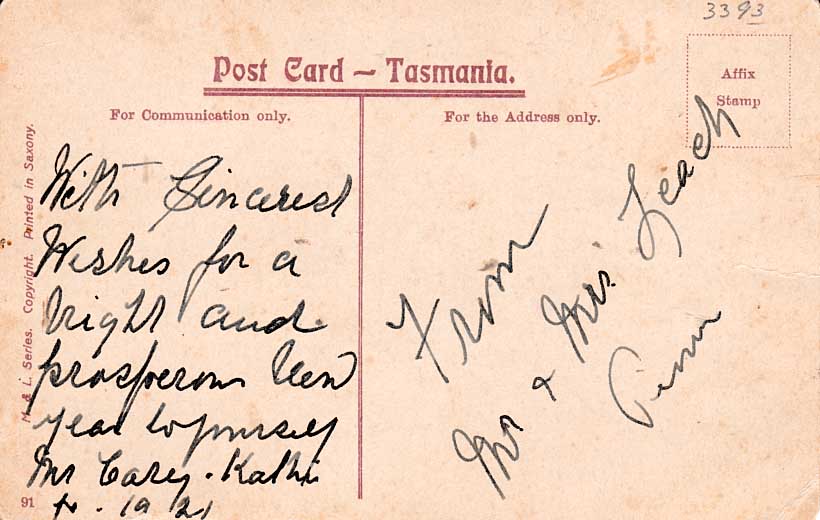 3393
Post Card – Tasmania.
Affix
Stamp
For Communication only.
For the Address only.
With Sincerest
Wishes for a
bright and
prosperous New
year to yourself
Mr Carey. Kathie
1921
From
Mr & Mrs. Leach
M & L. Series. Copyright. Printed in Saxony.
91